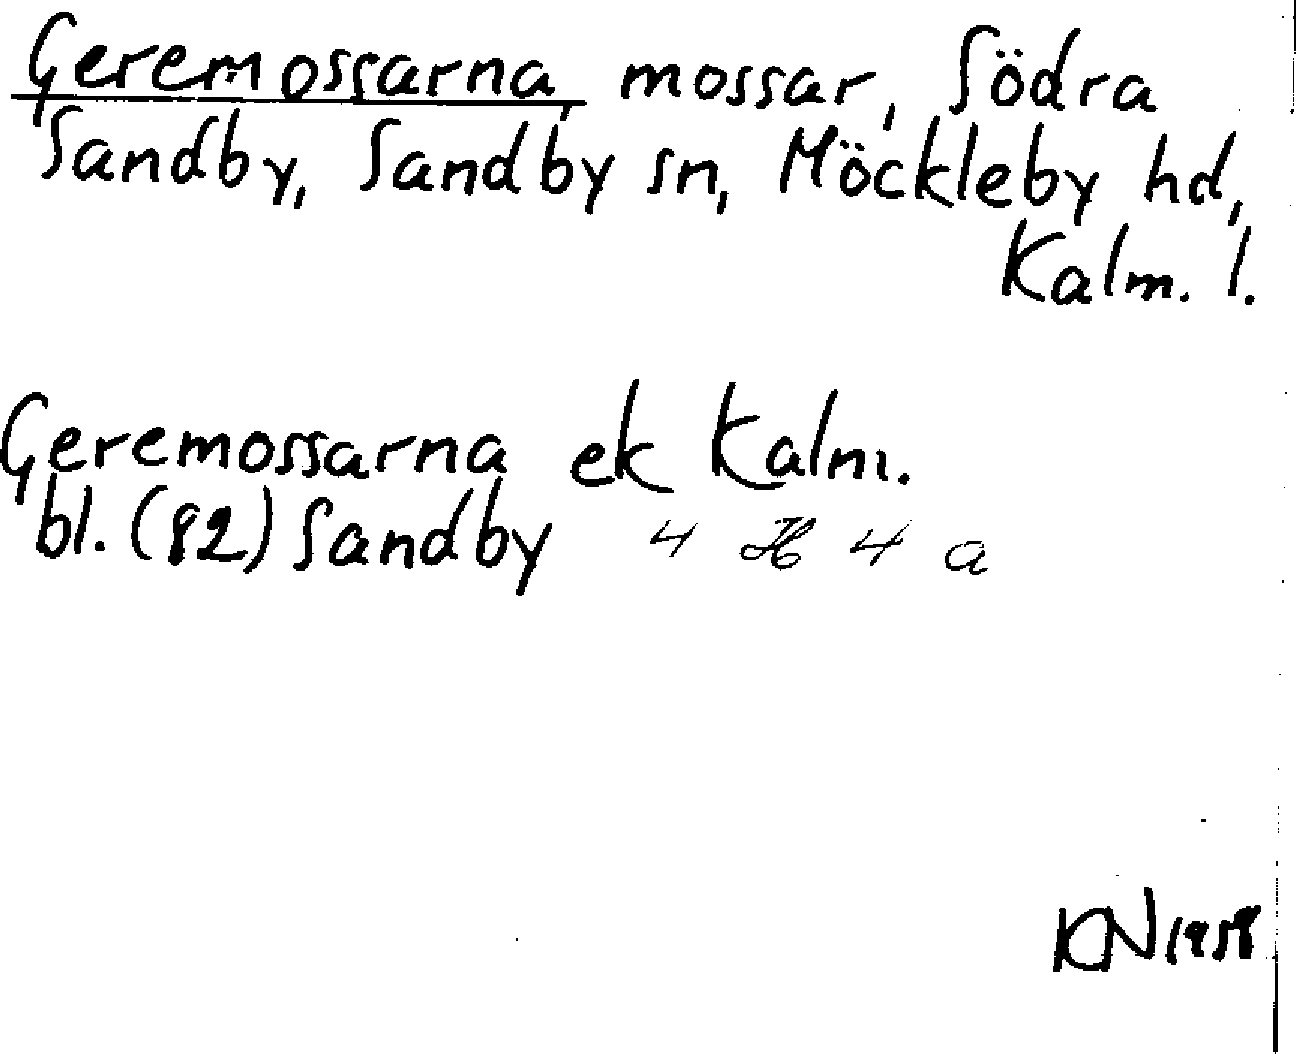 Geremossarna, mossar, Södra
Sandby, Sandby sn, Möckleby hd,
Kalm. l.
Geremossarna ek Kalm.
bl. (82) Sandby 4 H 4 a
KN 1958